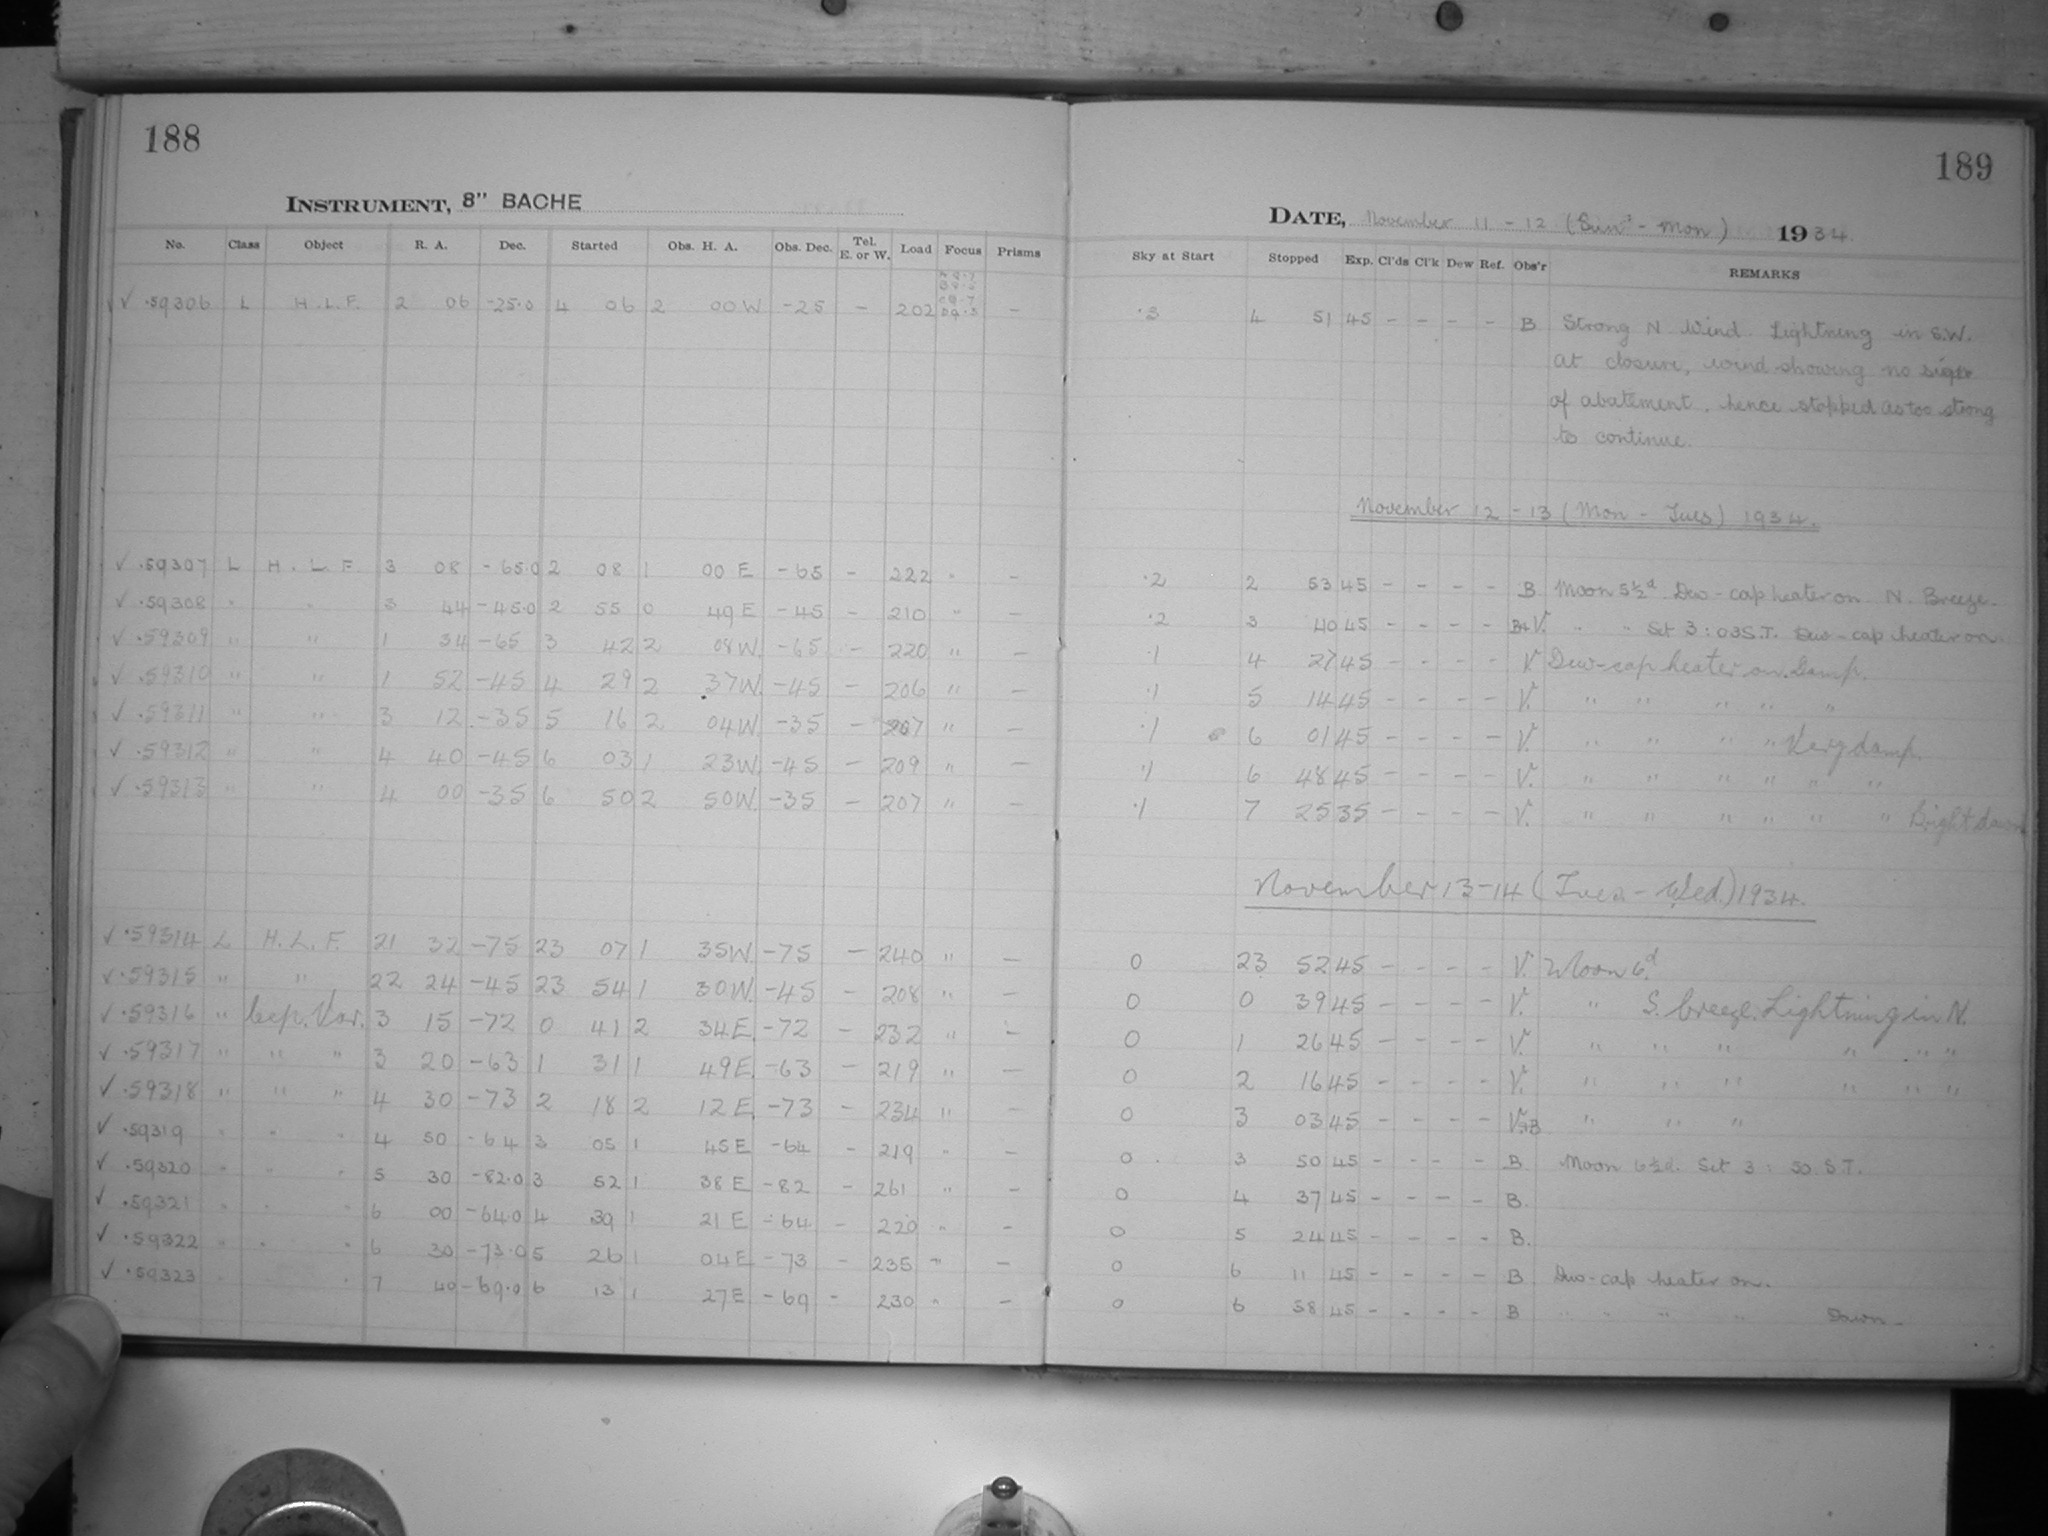 188
INSTRUMENT, 8" BACHE
No. Class Object R. A. Dec. Started Obs. H. A. Obs. Dec. Tel. E. or W. Load Focus Prisms
✓ .59306 L H.L.F. 2 06 -25.0 4 06 2 00W -25 - 202 -
✓ .59307 L H.L.F. 3 08 -65.0 2 08 1 00 E -65 - 222 " -
✓ .59308 " " 3 44 -45.0 2 55 0 49E -45 - 210 " -
✓ .59309 " " 1 34 -65 3 42 2 08W. -65 - 220 " -
✓ .59310 " " 1 52 -45 4 29 2 37W. -45 - 206 " -
✓ .59311 " " 3 12 -35 5 16 2 04W. -35 - 207 " -
✓ .59312 " " 4 40 -45 6 03 1 23W. -45 - 209 " -
✓ .59313 " " 4 00 -35 6 50 2 50W. -35 - 207 " -
✓ .59314 L H.L.F. 21 32 -75 23 07 1 35W. -75 - 240 " -
✓ .59315 " " 22 24 -45 23 54 1 30W. -45 - 208 " -
✓ .59316 " Cep. Var. 3 15 -72 0 41 2 34E. -72 - 232 " -
✓ .59317 " " " 3 20 -63 1 31 1 49E. -63 - 219 " -
✓ .59318 " " " 4 30 -73 2 18 2 12E. -73 - 234 " -
✓ .59319 " " " 4 50 -64 3 05 1 45E -64 - 219 " -
✓ .59320 " " " 5 30 -82.0 3 52 1 38E -82 - 261 " -
✓ .59321 " " " 6 00 -64.0 4 39 1 21E -64 - 220 " -
✓ .59322 " " " 6 30 -73.0 5 26 1 04E -73 - 235 " -
✓ .59323 " 7 40 -69.0 6 13 1 27E -69 - 230 " -
189
DATE, November 11 - 12 (Sun - Mon) 1934.
Sky at Start Stopped Exp. Cl'ds Cl'k Dew Ref. Obs'r REMARKS
.3 4 51 45 - - - - B Strong N Wind. Lightning in S.W.
at closure, wind showing no sign
of abatement, hence stopped as too strong
to continue.
November 12 - 13 (Mon - Tues) 1934.
.2 2 53 45 - - - - B Moon 5½d. Dew-cap heater on. N. Breeze.
.2 3 40 45 - - - - B+V. " " Set 3:03 S.T. Dew-cap heater on.
.1 4 27 45 - - - - V Dew-cap heater on. Damp.
.1 5 14 45 - - - - V. " " " " "
.1 6 01 45 - - - - V. " " " " Very damp.
.1 6 48 45 - - - - V. " " " " " "
.1 7 25 35 - - - - V. " " " " " " Bright dawn
November 13-14 (Tues - Wed.) 1934.
0 23 52 45 - - - - V. Moon 6d.
0 0 39 45 - - - - V. " S. breeze. Lightning in N.
0 1 26 45 - - - - V. " " " " " "
0 2 16 45 - - - - V. " " " " " "
0 3 03 45 - - - - V+B " " "
0 3 50 45 - - - - B Moon 6½d. Set 3: 50 S.T.
0 4 37 45 - - - - B.
0 5 24 45 - - - - B.
0 6 11 45 - - - - B Dew-cap heater on.
0 6 58 45 - - - - B " " " " Dawn.